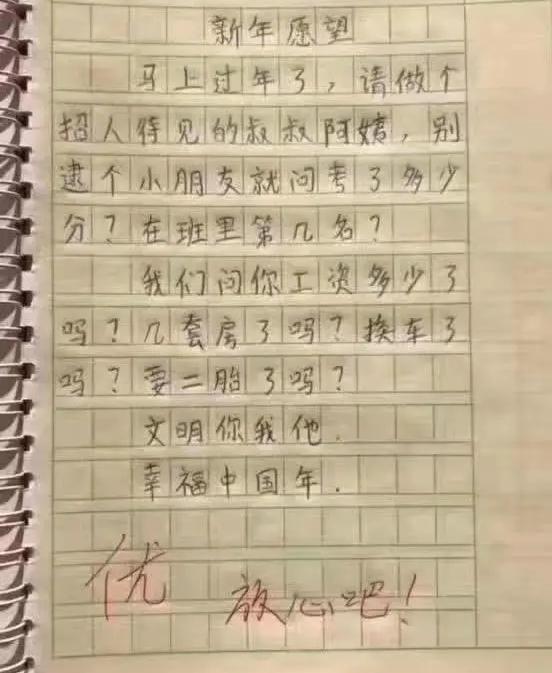 新年愿望
马上过年了,请做个
招人待见的叔叔阿姨,别
逮个小朋友就问考了多少
分?在班里第几名?
我们问你工资多少了
吗?几套房了吗?换车了
吗?要二胎了吗?
文明你我他.
幸福中国年.
优 放心吧!